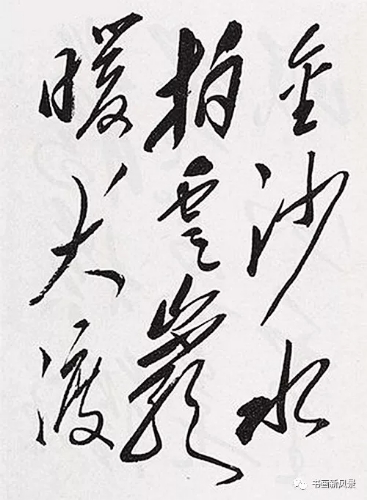 金沙水
拍雲巖
暖大渡
书画新风景